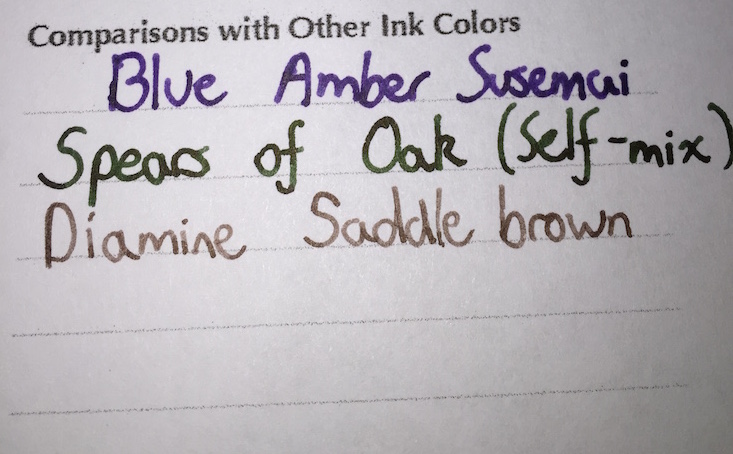 Comparisons with Other Ink Colors
Blue Amber Susemai
Spears of Oak (Self-mix)
Diamine Saddle brown